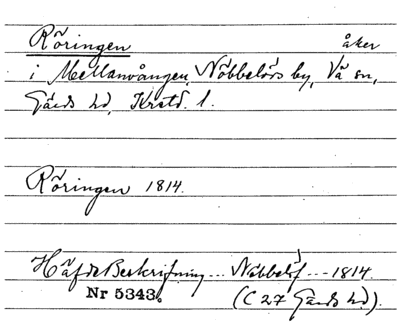 Röringen åker
i Mellanvången, Nöbbelövs by, Vä sn,
Gärds hd, Krstd. l.
Röringen 1814.
HäfdeBeskrifning... Nöbbelöf --- 1814.
Nr 5343. (C 27 Gärds hd).